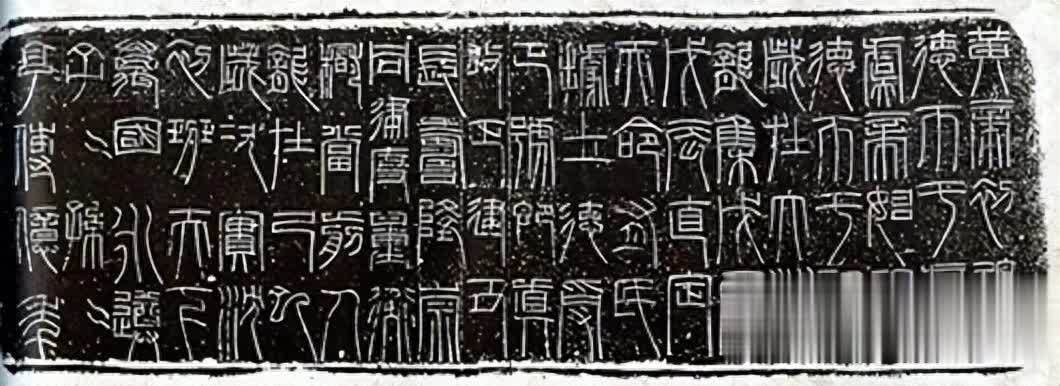 黃帝初
德帀于
虞帝始
德帀于
歲在大
龍集戊
戊辰直定
天命有民
據土德受
正號即真
改正建丑
長壽隆崇
同律度量衡
稽當前人
龍在己巳
歲次實沈
初班天下
萬國永遵
子〻孫〻
亨傳億年